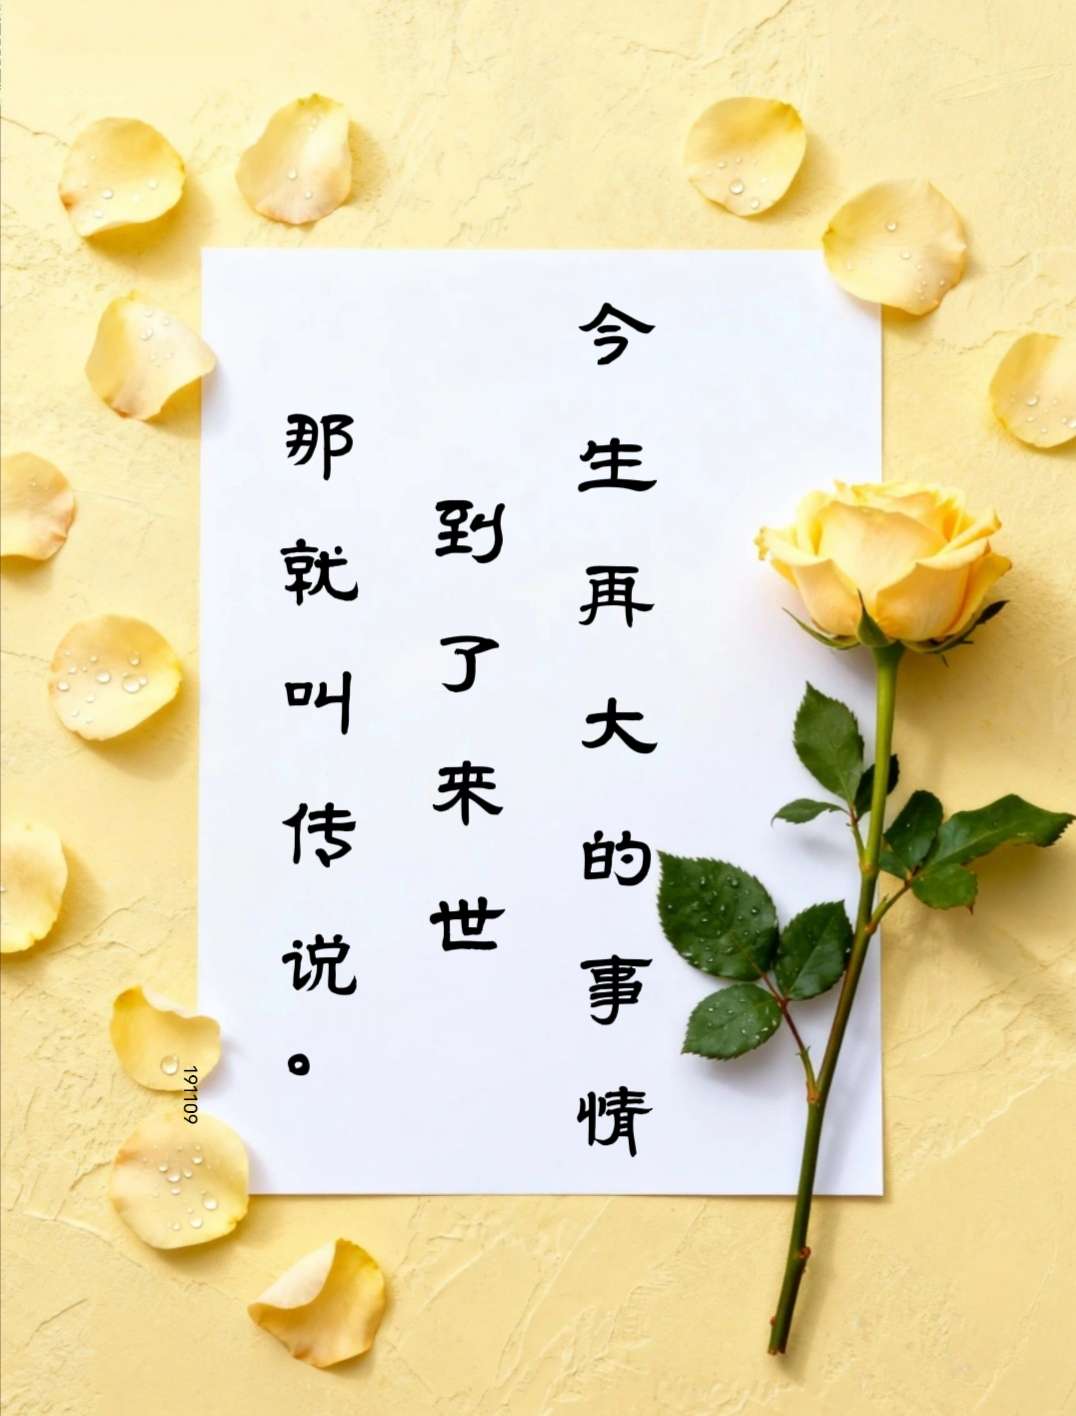 今生再大的事情
到了来世
那就叫传说。
191109